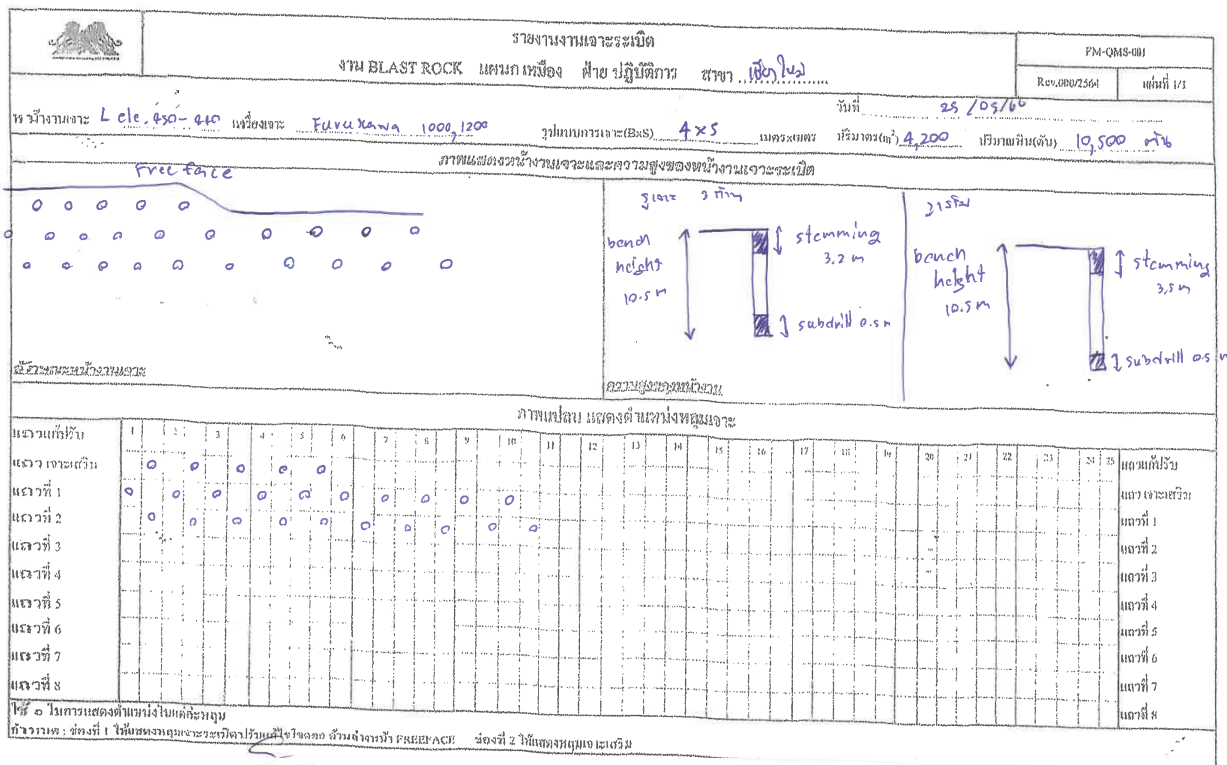 รายงานงานเจาะระเบิด
งาน BLAST ROCK แผนก เหมือง ฝ่าย ปฏิบัติการ สาขา เชียงใหม่
FM-QMS-001
Rev.000/2564 แผ่นที่ 1/1
วันที่ 25/05/66
L ele. 450-440 เครื่องเจาะ Furukawa 1000,1200 รูปแบบการเจาะ(BxS) 4x5 เมตรxเมตร ปริมาตร(m³) 4,200 ปริมาณหิน(ตัน) 10,500 ตัน
ภาพแสดงหน้างานเจาะและความสูงของหน้างานเจาะระเบิด
Free face
รูเจาะ
bench height 10.5 m
stemming 3.2 m
subdrill 0.5 m
bench height 10.5 m
stemming 3,5 m
subdrill 0.5 m
ลักษณะหน้างานเจาะ
ความสูงของหน้างาน
ภาพแปลน แสดงตำแหน่งหลุมเจาะ
แถวแก้ปรับ 1 2 3 4 5 6 7 8 9 10 11 12 13 14 15 16 17 18 19 20 21 22 23 24 25 แถวแก้ปรับ
แถว เจาะเสริม แถว เจาะเสริม
แถวที่ 1 แถวที่ 1
แถวที่ 2 แถวที่ 2
แถวที่ 3 แถวที่ 3
แถวที่ 4 แถวที่ 4
แถวที่ 5 แถวที่ 5
แถวที่ 6 แถวที่ 6
แถวที่ 7 แถวที่ 7
แถวที่ 8 แถวที่ 8
ใช้ o ในการแสดงตำแหน่งในแต่ละหลุม
ช่องที่ 1 ให้แสดงหลุมเจาะระเบิด FREEFACE ช่องที่ 2 ให้แสดงหลุมเจาะเสริม